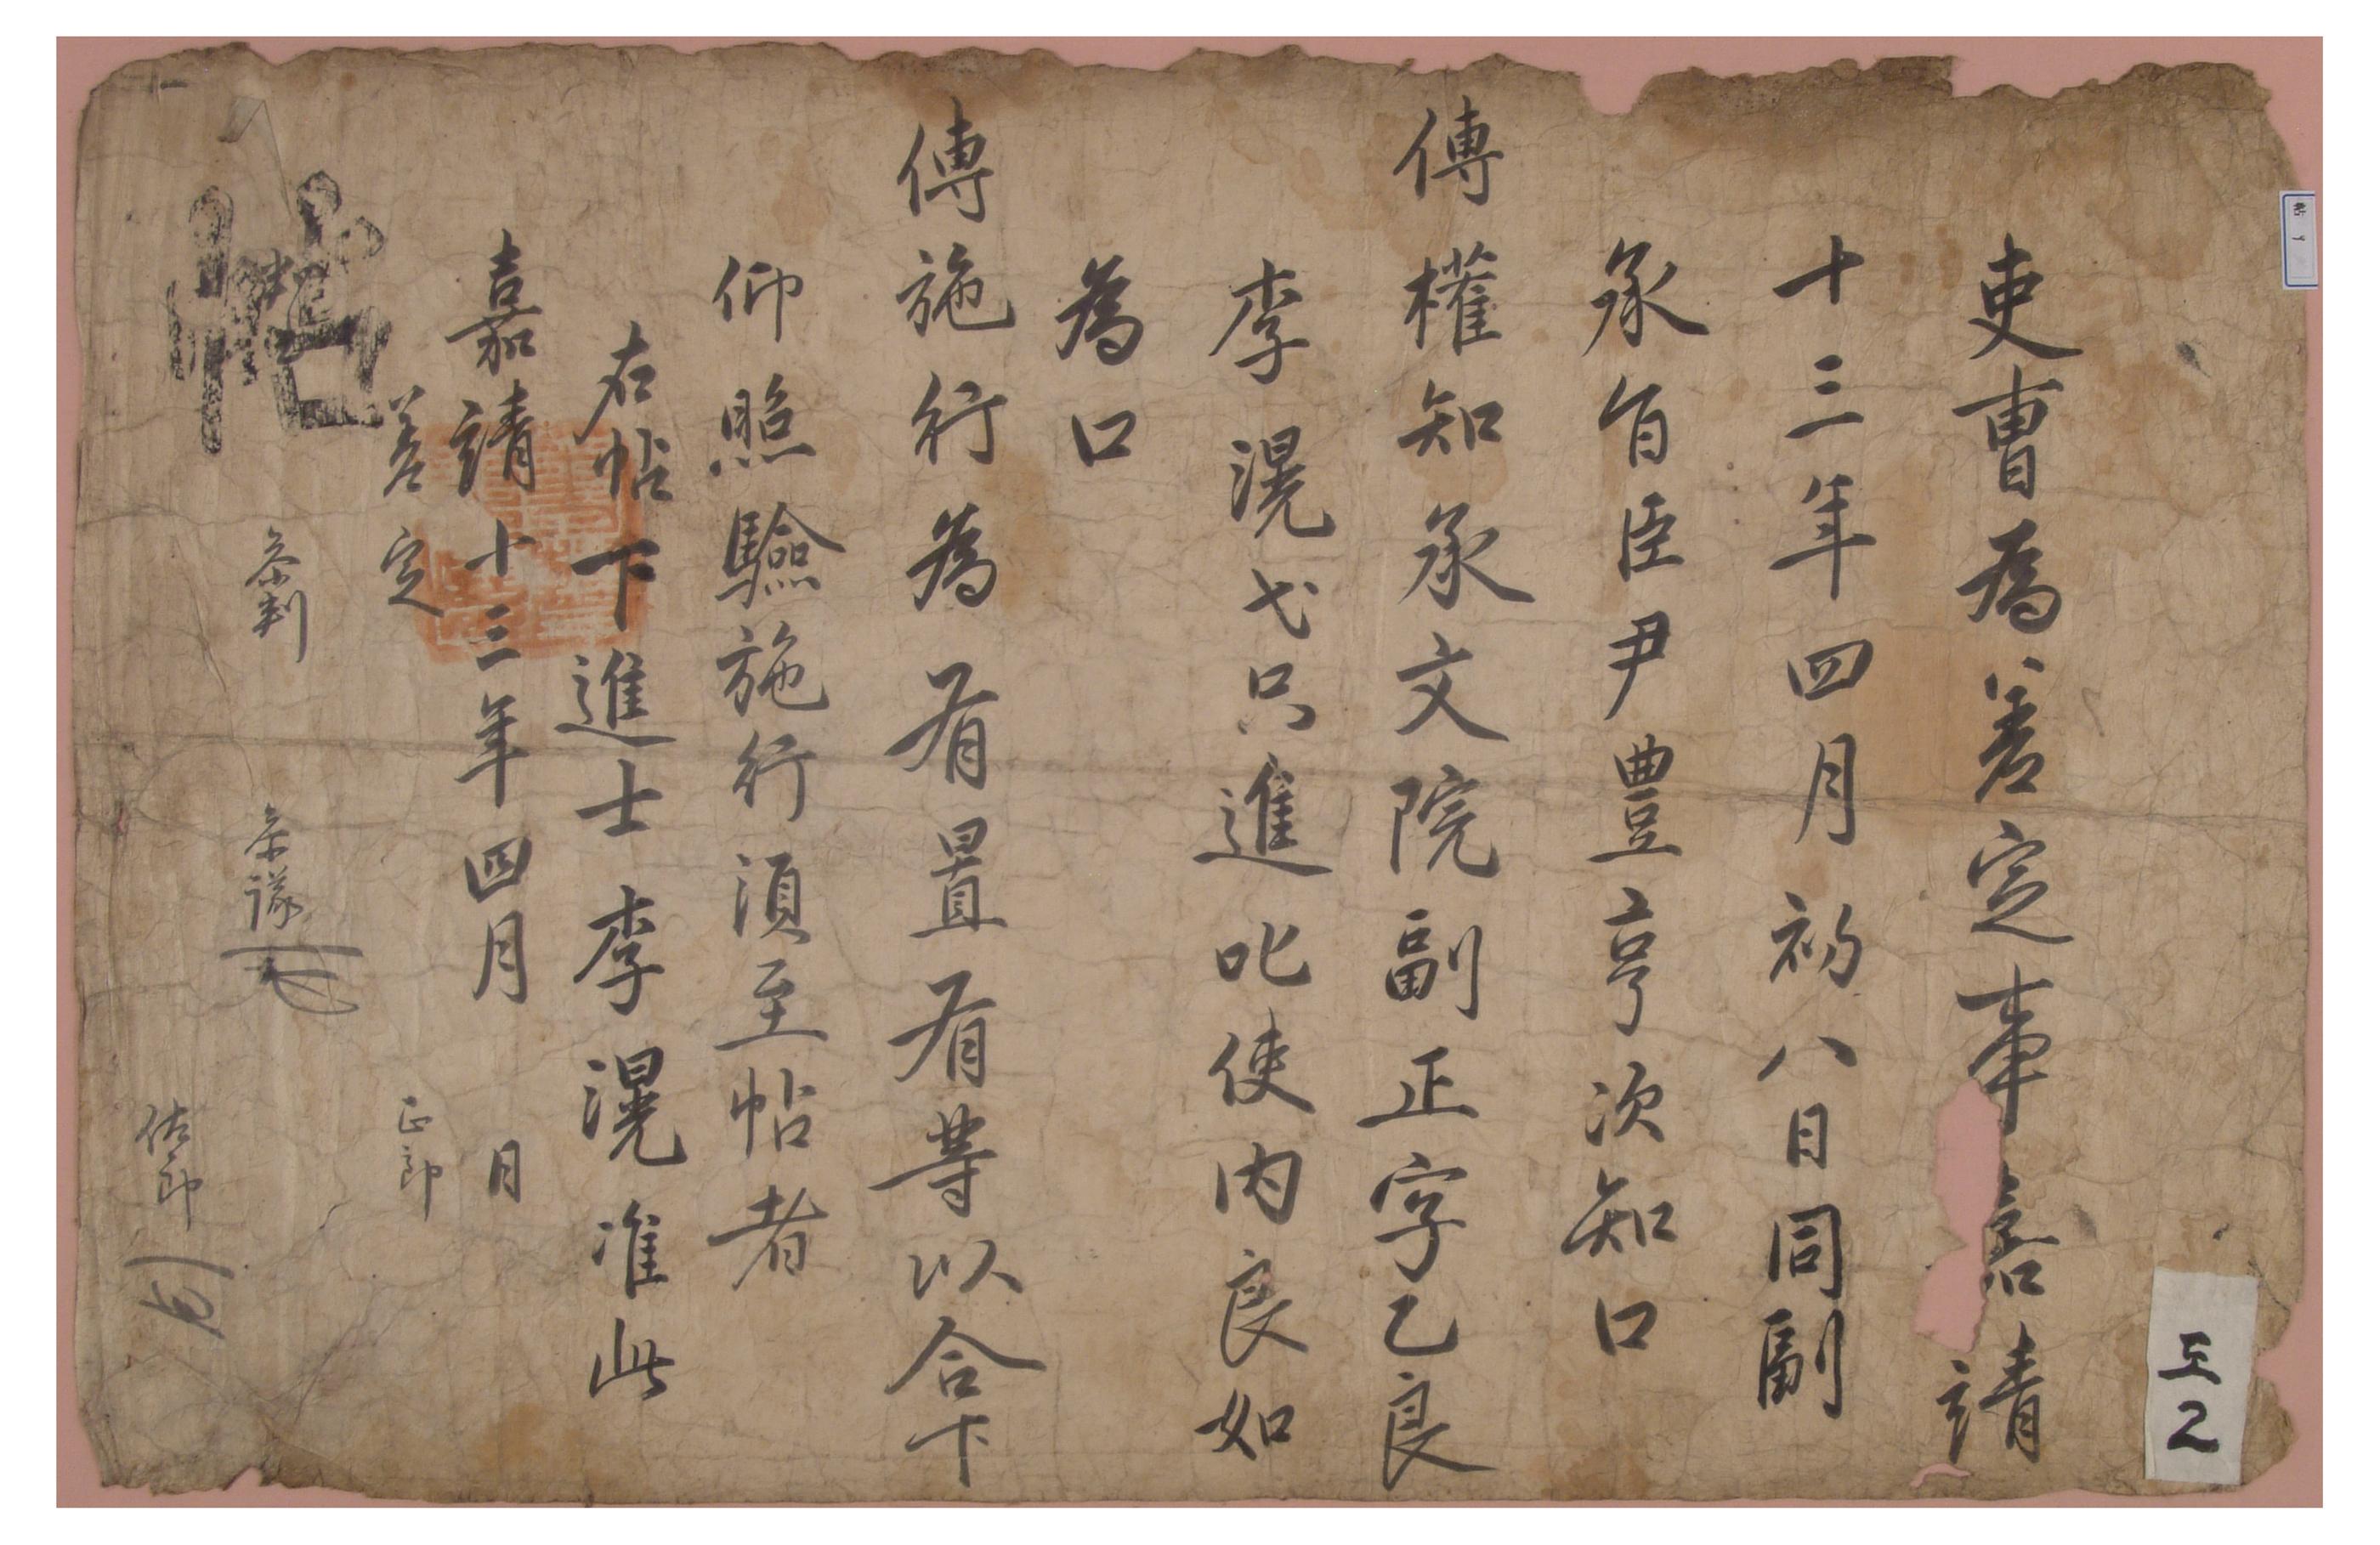 吏曹為差定事嘉靖
十三年四月初八日同副
承旨臣尹豊亨次知口
傳權知承文院副正字乙良
李滉弋只進叱使內良如
為口
傳施行為有置有等以合下
仰照驗施行湏至帖者
右帖下進士李滉准此
嘉靖十三年四月 日
差定
帖
參判
參議
正郎
佐郎
도2